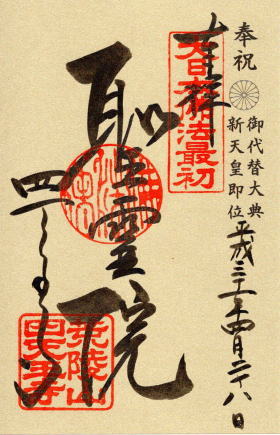 奉祝
御代替大典
新天皇即位
平成三十一年四月二十八日
吉祥
大日本佛法最初
聖霊院
四天王寺
荒陵山
四天王寺